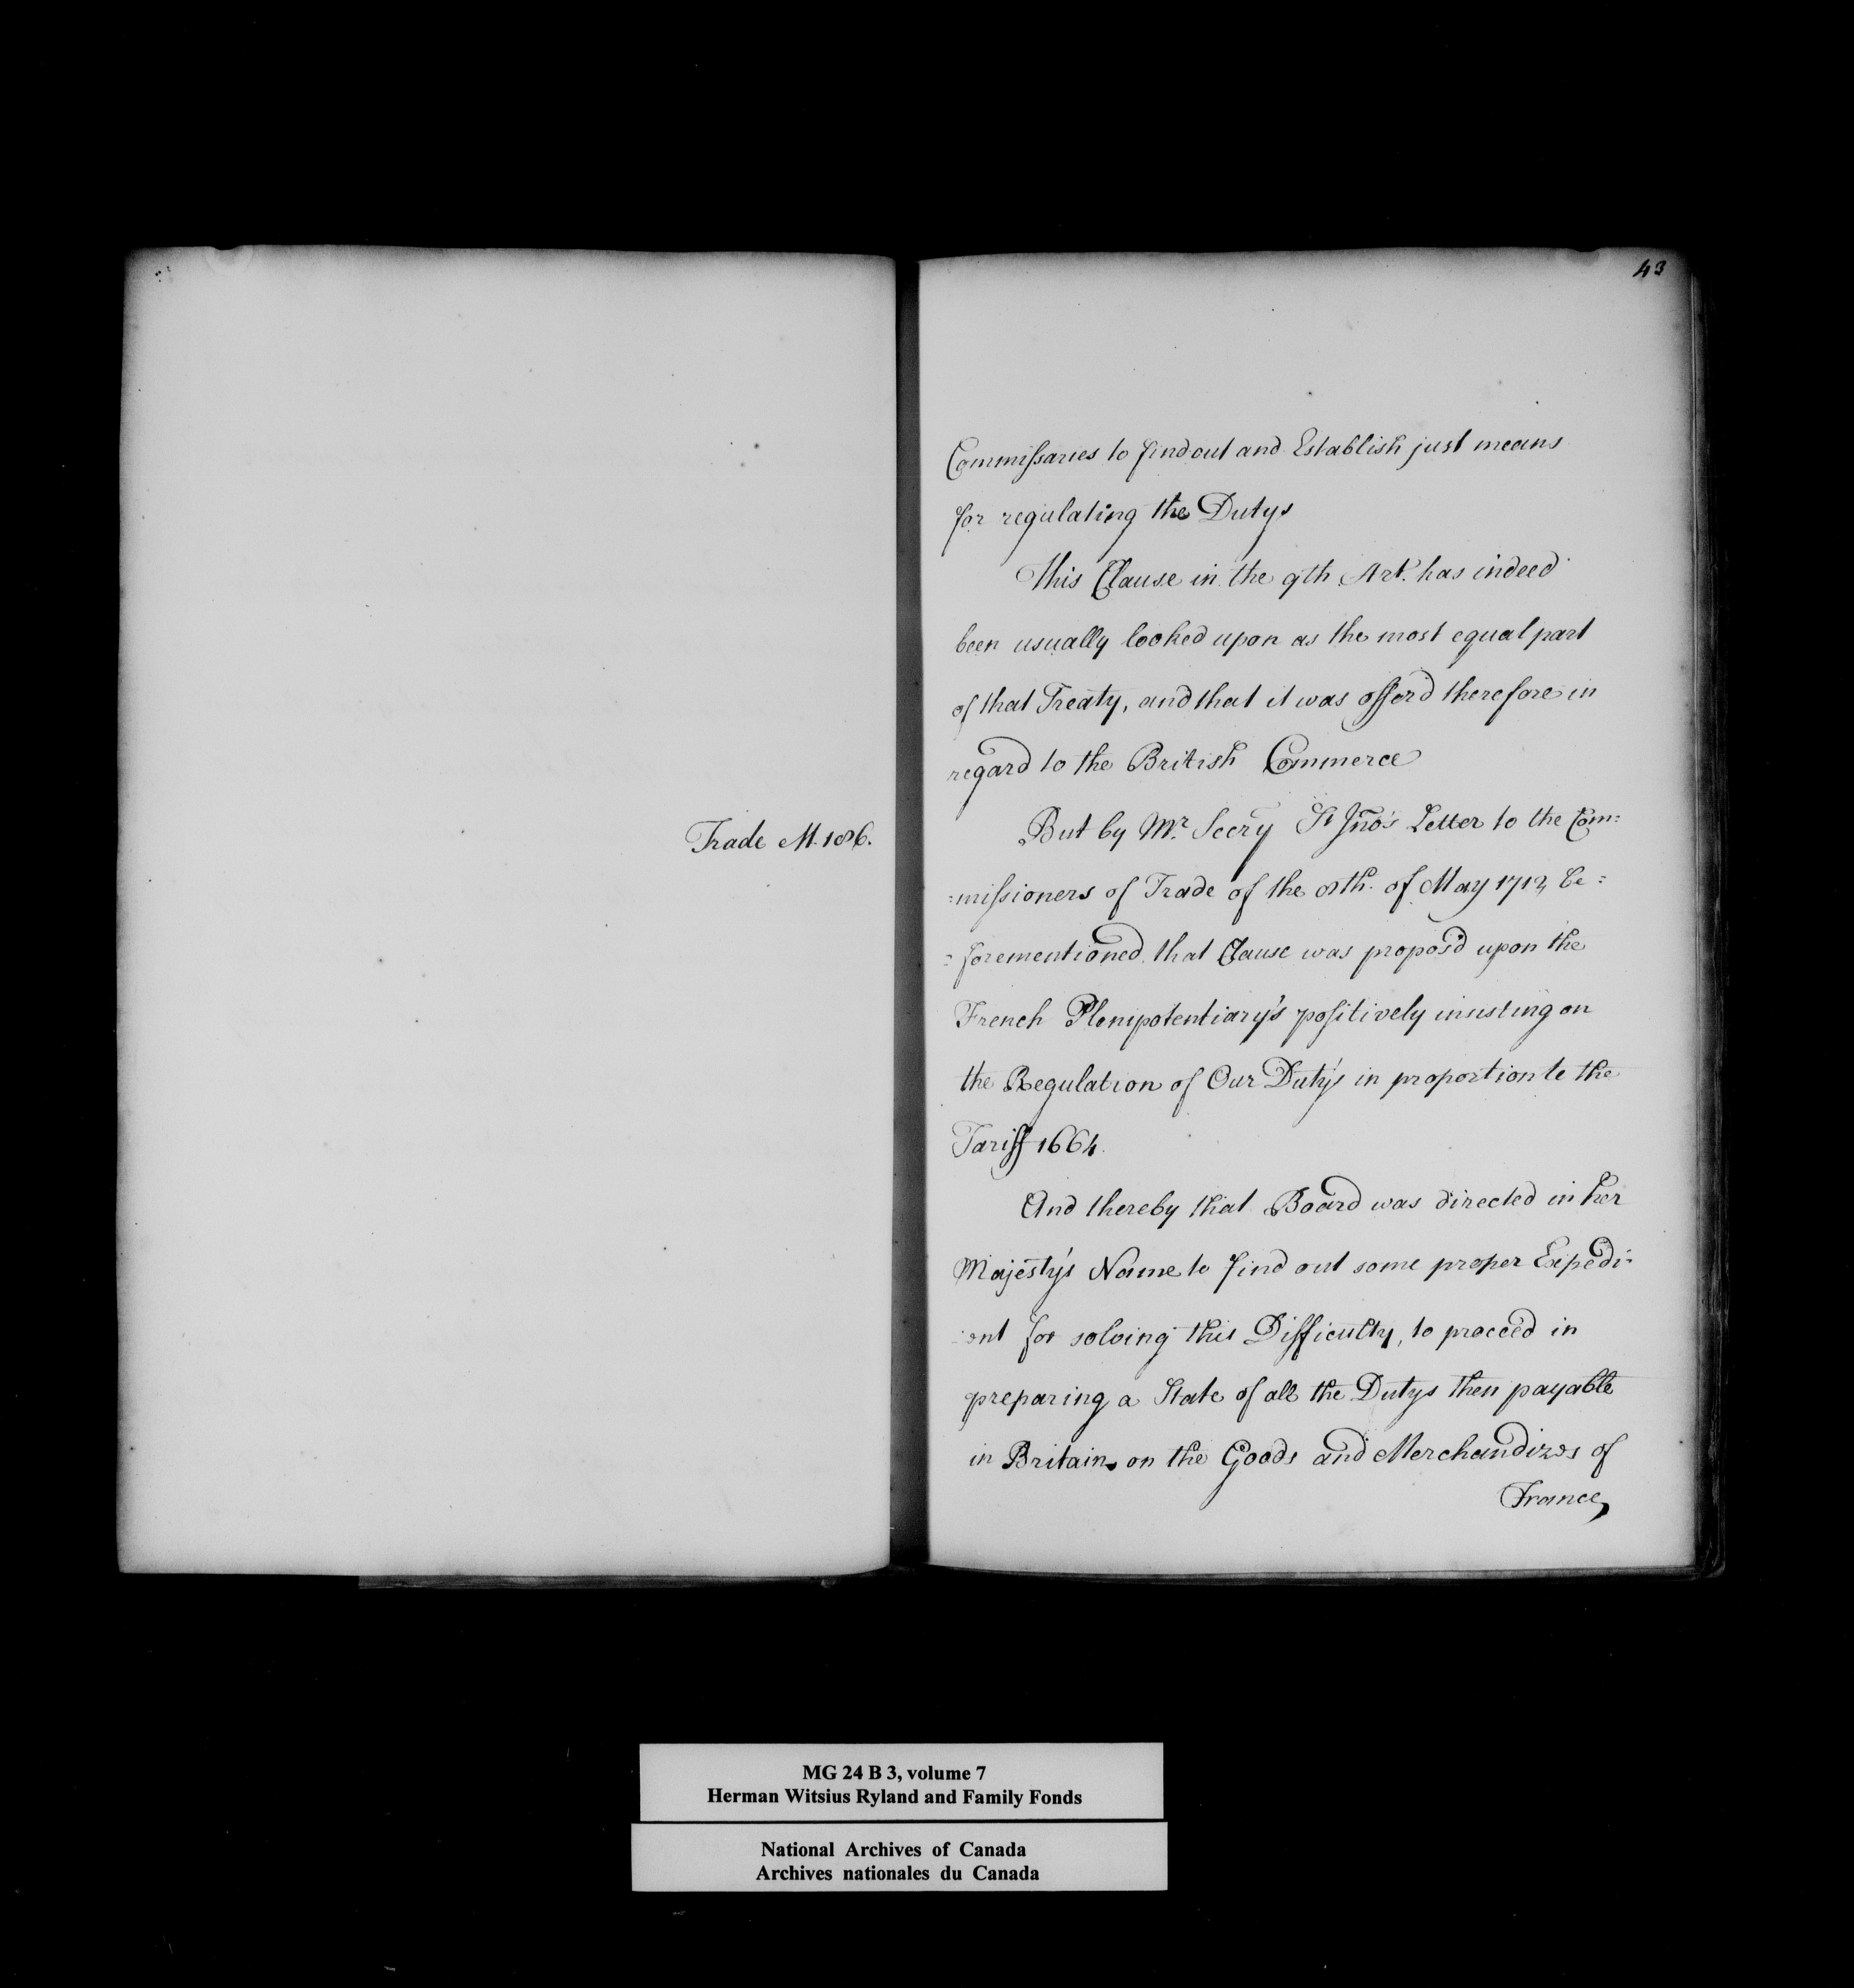 43
Commissaries to find out and Establish just means
for regulating the Dutys
This Clause in the 9th Art. has indeed
been usually looked upon as the most equal part
of that Treaty, and that it was offer'd therefore in
regard to the British Commerce
Trade M.
But by Mr. Secry St Jno's Letter to the Com=
=missioners of Trade of the of May be=
=forementioned that Clause was propos'd upon the
French Plenipotentiary's positively insisting on
the Regulation of Our Duty's in proportion to the
Tariff 1664.
And thereby that Board was directed in her
Majesty's Name to find out some proper Expedi=
=ent for solving this Difficulty, to proceed in
preparing a State of all the Dutys then payable
in Britain on the Goods and Merchandizes of
France,
MG 24 B 3, volume 7
Herman Witsius Ryland and Family Fonds
National Archives of Canada
Archives nationales du Canada